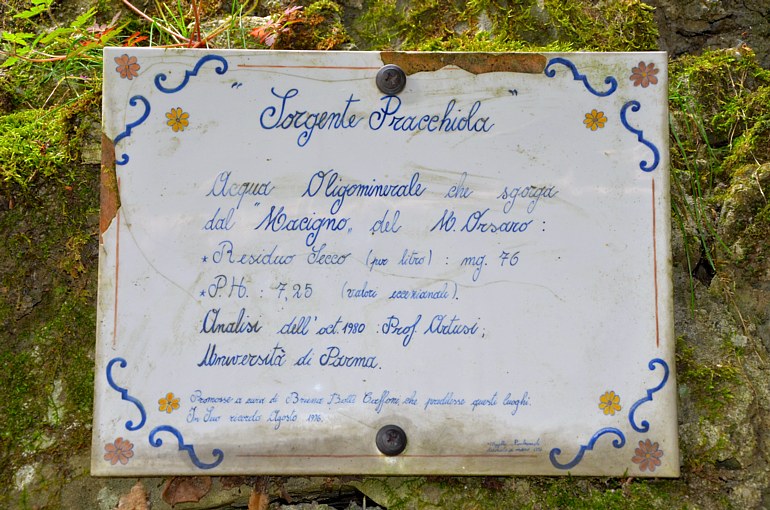 "Sorgente Pracchiola"
Acqua Oligominerale che sgorga
dal "Macigno„ del M. Orsaro :
* Residuo Secco (per litro) : mg. 76
* P.H. : 7,25 (valori eccezionali).
Analisi dell'oct. 1980 : Prof. Artusi;
Università di Parma.
Promosse a cura di Bruna Botti che predilesse questi luoghi.
In Suo ricordo Agosto 1996.